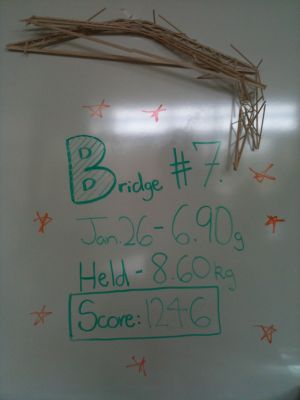 Bridge #7.
Jan.26-6.90g
Held-8.60kg
Score:1246